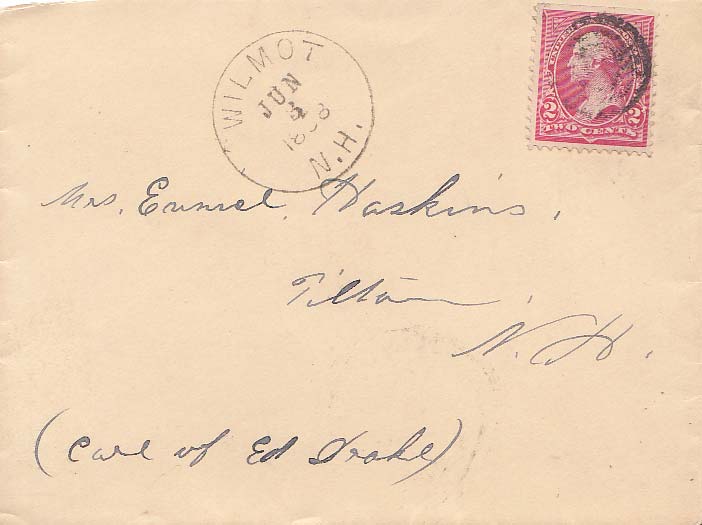 WILMOT
JUN
1898
N.H.
2 2
TWO CENTS
Mrs. Haskins,
Tilton,
N.H.
(Care of Ed Drake)